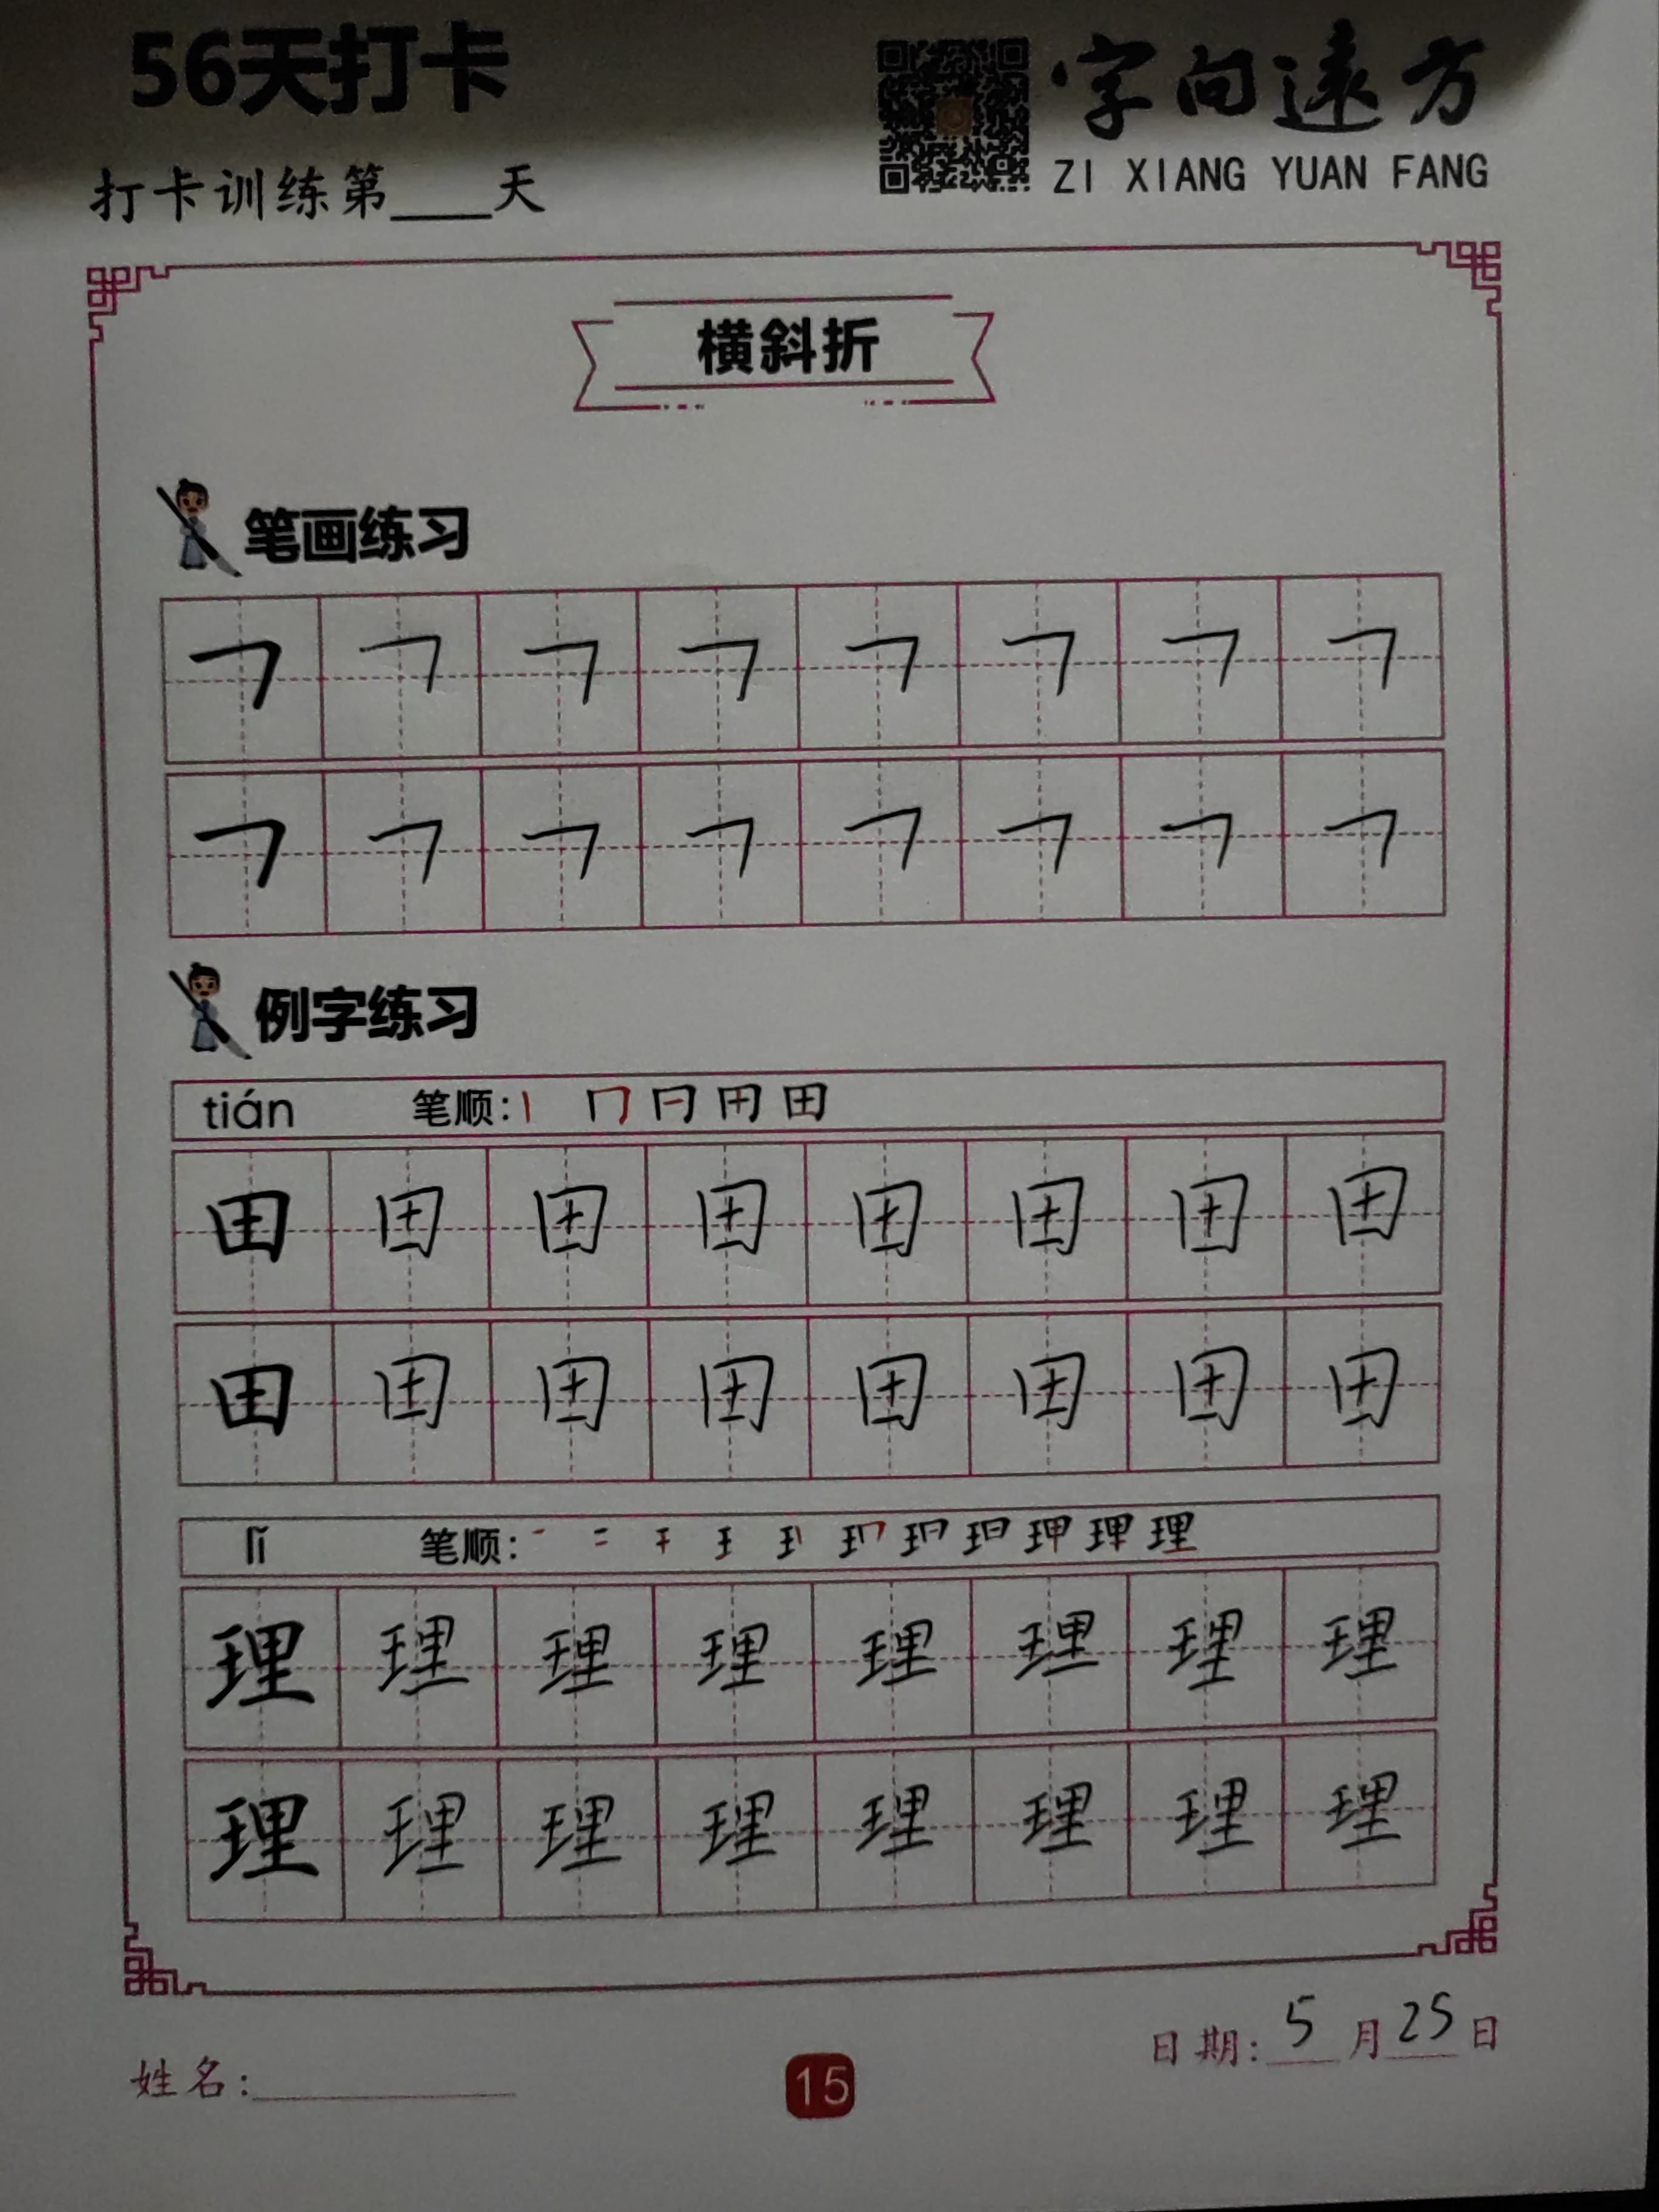 56天打卡
字向遠方
ZI XIANG YUAN FANG
打卡训练第____天
横斜折
笔画练习
㇕ ㇕ ㇕ ㇕ ㇕ ㇕ ㇕ ㇕
㇕ ㇕ ㇕ ㇕ ㇕ ㇕ ㇕ ㇕
例字练习
tián 笔顺: 丨 冂 冃 用 田
田 田 田 田 田 田 田 田
田 田 田 田 田 田 田 田
lǐ 笔顺: 理
理 理 理 理 理 理 理 理
理 理 理 理 理 理 理 理
日期: 5 月 25 日
姓名:
15